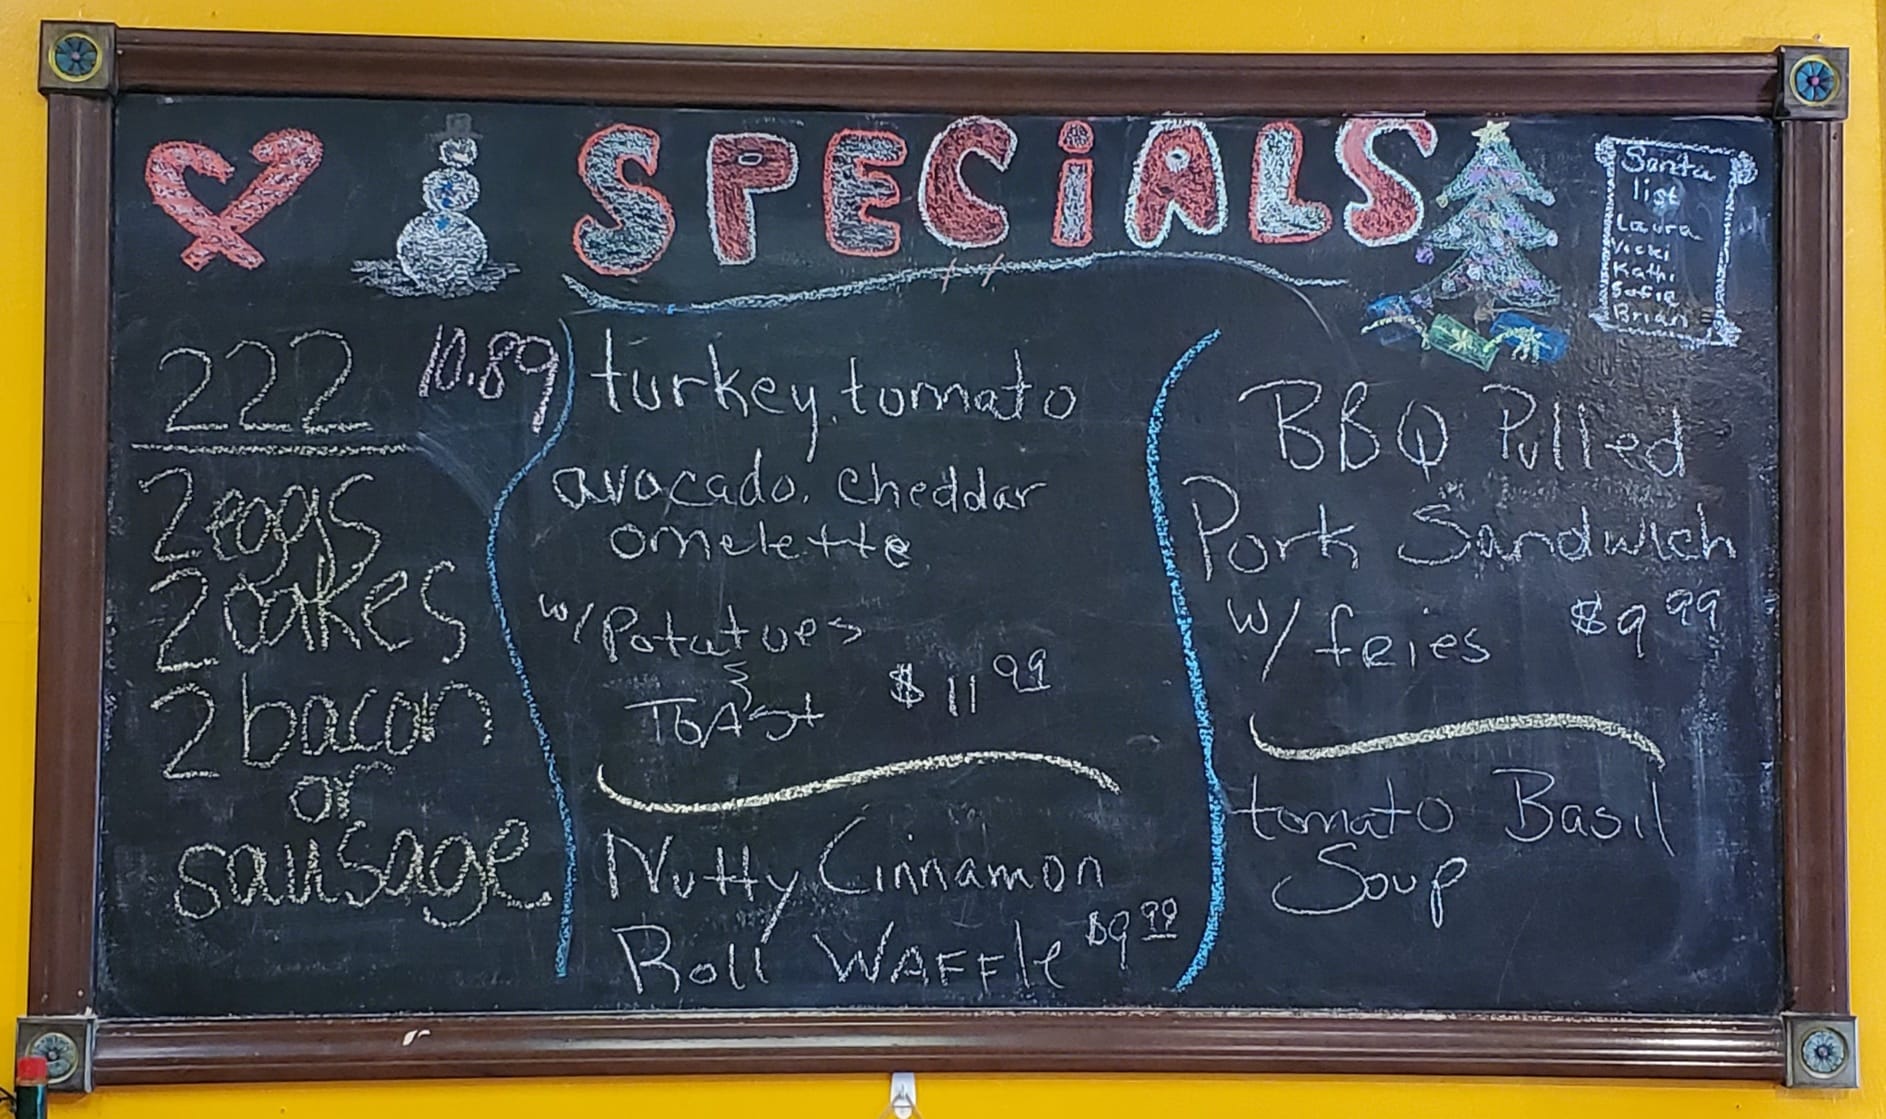 SPECiALS
Santa
list
Laura
Vicki
Kathi
Sofie
Brian
222 10.89
2 eggs
2 cakes
2 bacon
or
sausage
turkey, tomato
avacado, cheddar
omelette
w/ Potatoes
&
TOAst $11 99
Nutty Cinnamon
Roll WAFFle $9 99
BBQ Pulled
Pork Sandwich
w/ feies $9 99
tomato Basil
Soup